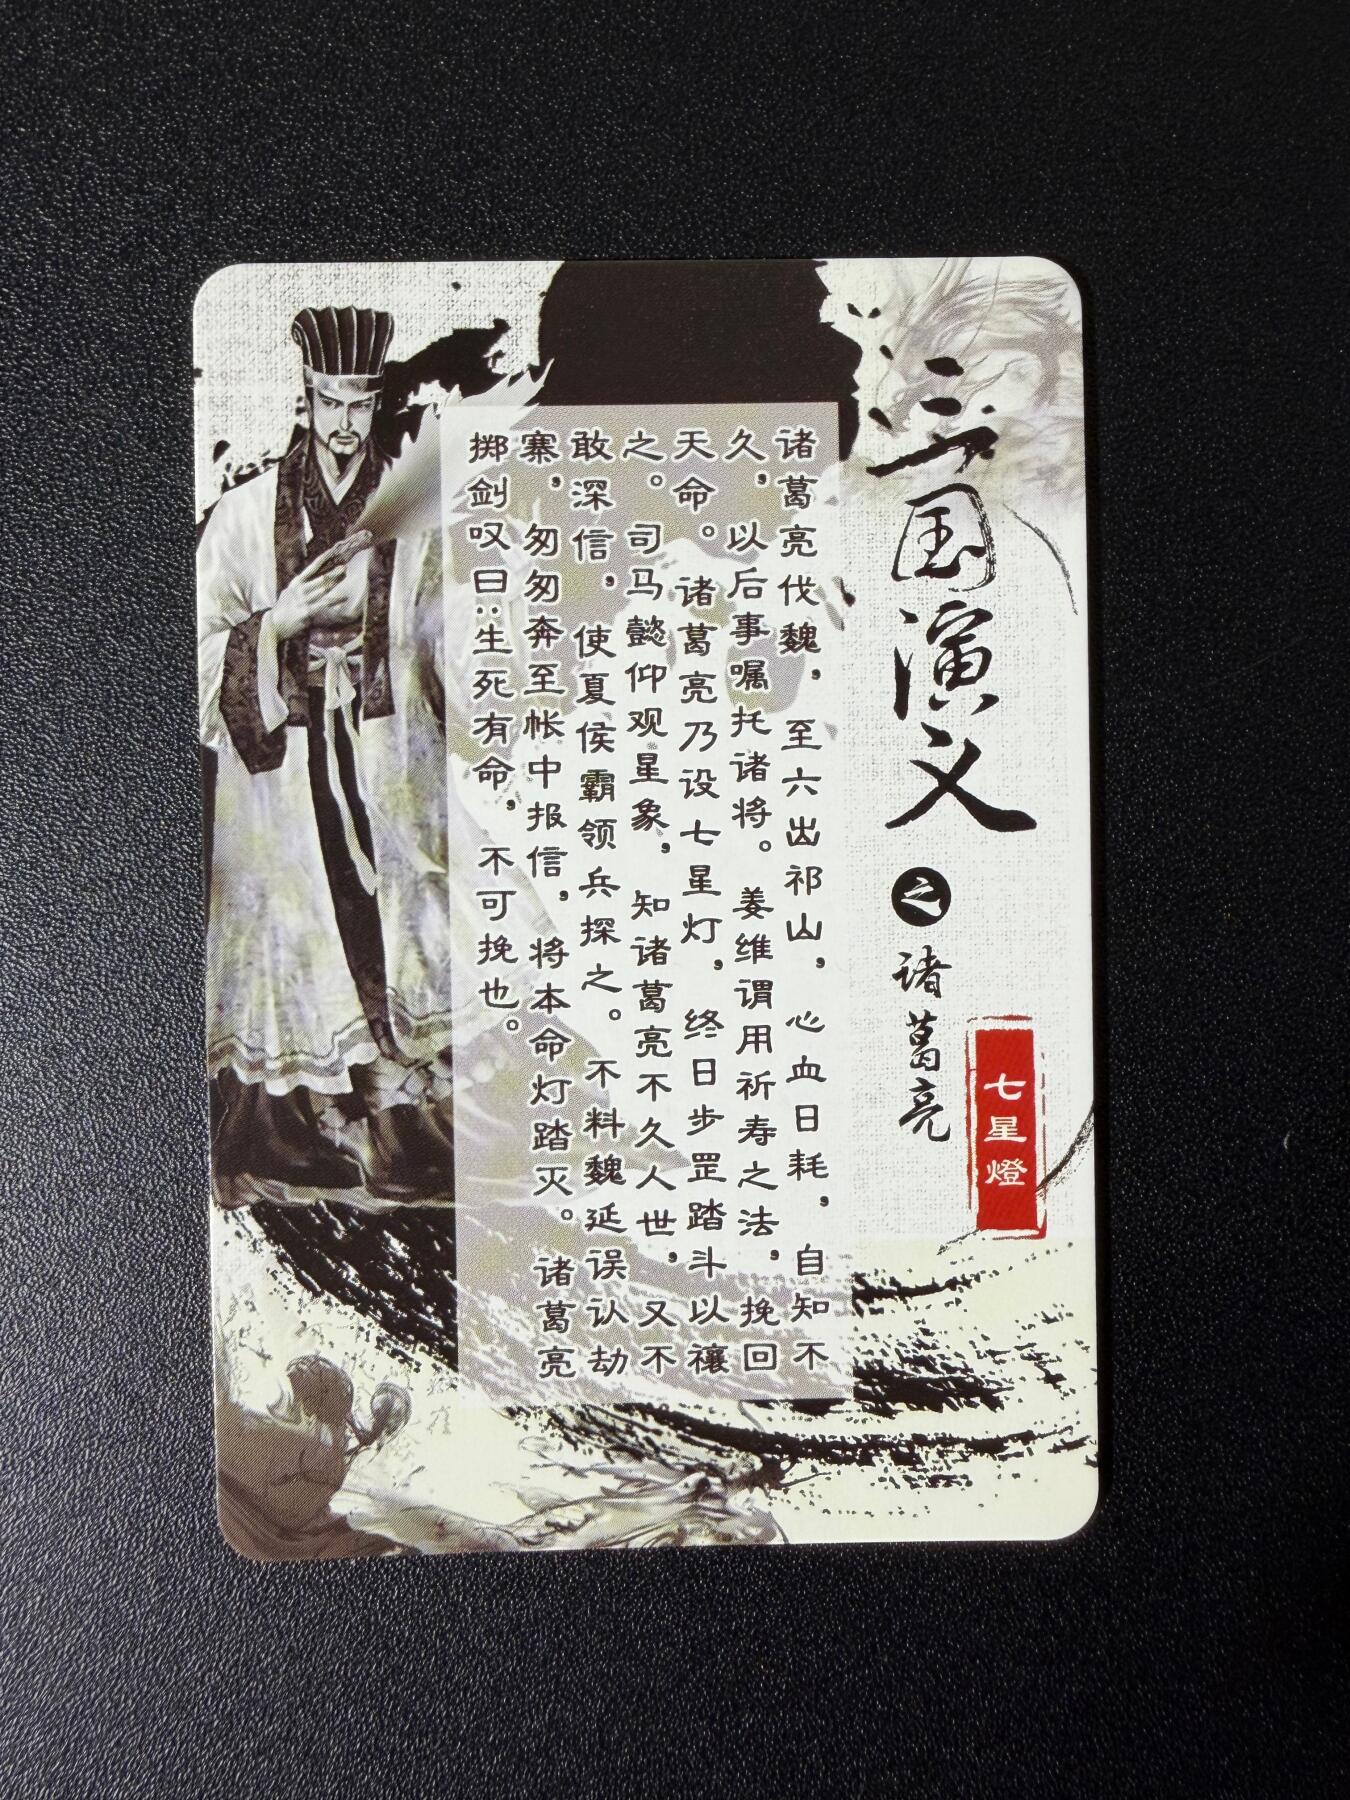 三国演义
之
诸葛亮
七星燈
诸葛亮伐魏，至六出祁山，心血日耗，自知不
久，以后事嘱托诸将。姜维谓用祈寿之法，挽回
天命。诸葛亮乃设七星灯，终日步罡踏斗以禳
之。司马懿仰观星象，知诸葛亮不久人世，又不
敢深信，使夏侯霸领兵探之。不料魏延误认劫
寨，匆匆奔至帐中报信，将本命灯踏灭。诸葛亮
掷剑叹曰：生死有命，不可挽也。